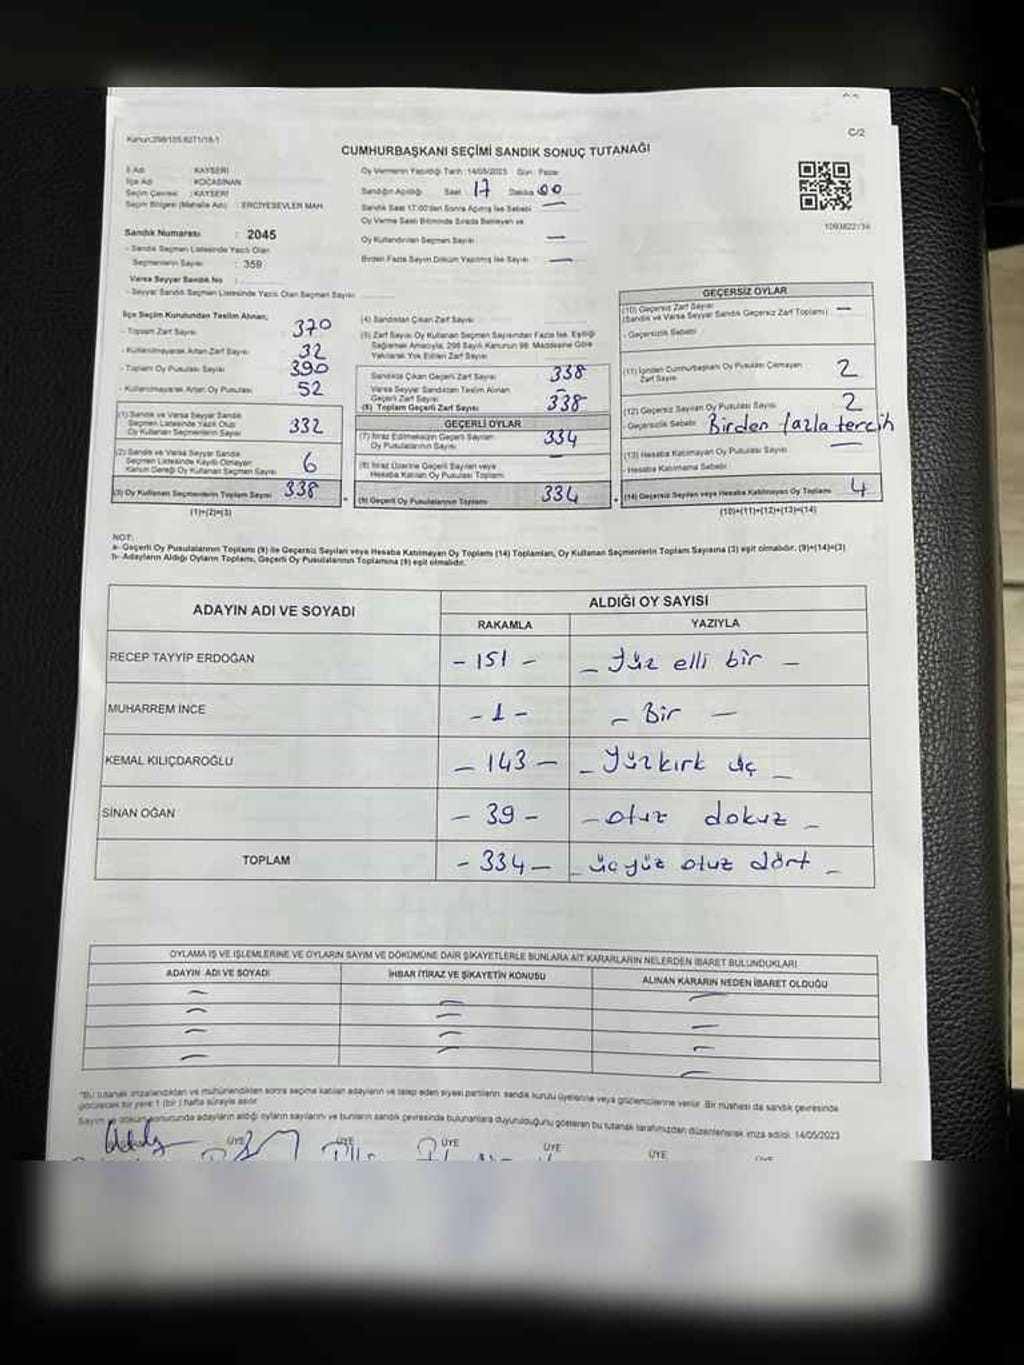 Kanun:298/105,6271/18-1
C/2
CUMHURBAŞKANI SEÇİMİ SANDIK SONUÇ TUTANAĞI
İl Adı : KAYSERİ
İlçe Adı : KOCASİNAN
Seçim Çevresi : KAYSERİ
Seçim Bölgesi (Mahalle Adı) : ERCİYESEVLER MAH.
Sandık Numarası : 2045
- Sandık Seçmen Listesinde Yazılı Olan
Seçmenlerin Sayısı : 359
Varsa Seyyar Sandık No :
- Seyyar Sandık Seçmen Listesinde Yazılı Olan Seçmen Sayısı
Oy Vermenin Yapıldığı Tarih : 14/05/2023 Gün : Pazar
Sandığın Açıldığı Saat 17 Dakika 00
Sandık Saat 17:00'den Sonra Açılmış İse Sebebi —
Oy Verme Saati Bitiminde Sırada Bekleyen ve
Oy Kullandırılan Seçmen Sayısı —
Birden Fazla Sayım Döküm Yapılmış İse Sayısı —
İlçe Seçim Kurulundan Teslim Alınan;
- Toplam Zarf Sayısı 370
- Kullanılmayarak Artan Zarf Sayısı 32
- Toplam Oy Pusulası Sayısı 390
- Kullanılmayarak Artan Oy Pusulası 52
(1) Sandık ve Varsa Seyyar Sandık
Seçmen Listesinde Yazılı Olup
Oy Kullanan Seçmenlerin Sayısı 332
(2) Sandık ve Varsa Seyyar Sandık
Seçmen Listesinde Kayıtlı Olmayan
Kanun Gereği Oy Kullanan Seçmen Sayısı 6
(3) Oy Kullanan Seçmenlerin Toplam Sayısı 338
(1)+(2)=(3)
(4) Sandıktan Çıkan Zarf Sayısı
(5) Zarf Sayısı Oy Kullanan Seçmen Sayısından Fazla İse, Eşitliği
Sağlamak Amacıyla, 298 Sayılı Kanunun 98. Maddesine Göre
Yakılarak Yok Edilen Zarf Sayısı
Sandıkta Çıkan Geçerli Zarf Sayısı 338
Varsa Seyyar Sandıktan Teslim Alınan
Geçerli Zarf Sayısı —
(6) Toplam Geçerli Zarf Sayısı 338
GEÇERLİ OYLAR
(7) İtiraz Edilmeksizin Geçerli Sayılan
Oy Pusulasının Sayısı 334
(8) İtiraz Üzerine Geçerli Sayılan veya
Hesaba Katılan Oy Pusulası Toplamı —
(9) Geçerli Oy Pusulalarının Toplamı 334
GEÇERSİZ OYLAR
(10) Geçersiz Zarf Sayısı
(Sandık ve Varsa Seyyar Sandık Geçersiz Zarf Toplamı) —
- Geçersizlik Sebebi
(11) İçinden Cumhurbaşkanı Oy Pusulası Çıkmayan
Zarf Sayısı 2
(12) Geçersiz Sayılan Oy Pusulası Sayısı 2
- Geçersizlik Sebebi Birden fazla tercih
(13) Hesaba Katılmayan Oy Pusulası Sayısı —
- Hesaba Katılmama Sebebi
(14) Geçersiz Sayılan veya Hesaba Katılmayan Oy Toplamı 4
(10)+(11)+(12)+(13)=(14)
NOT:
a- Geçerli Oy Pusulalarının Toplamı (9) ile Geçersiz Sayılan veya Hesaba Katılmayan Oy Toplamı (14) Toplamları, Oy Kullanan Seçmenlerin Toplam Sayısına (3) eşit olmalıdır. (9)+(14)=(3)
b- Adayların Aldığı Oyların Toplamı, Geçerli Oy Pusulalarının Toplamına (9) eşit olmalıdır.
ADAYIN ADI VE SOYADI
ALDIĞI OY SAYISI
RAKAMLA YAZIYLA
RECEP TAYYİP ERDOĞAN - 151 - - Yüz elli bir -
MUHARREM İNCE - 1 - - Bir -
KEMAL KILIÇDAROĞLU - 143 - - Yüzkırk üç -
SİNAN OĞAN - 39 - - otuz dokuz -
TOPLAM - 334 - - üçyüz otuz dört -
OYLAMA İŞ VE İŞLEMLERİNE VE OYLARIN SAYIM VE DÖKÜMÜNE DAİR ŞİKAYETLERLE BUNLARA AİT KARARLARIN NELERDEN İBARET BULUNDUKLARI
ADAYIN ADI VE SOYADI İHBAR İTİRAZ VE ŞİKAYETİN KONUSU ALINAN KARARIN NEDEN İBARET OLDUĞU
*Bu tutanak imzalandıktan ve mühürlendikten sonra seçime katılan adayların ve talep eden siyasi partilerin sandık kurulu üyelerine veya gözlemcilerine verilir. Bir nüshası da sandık çevresinde
görülecek bir yere 1 (bir) hafta süreyle asılır.
Sayım ve döküm sonucunda adayların aldığı oyların sayılarını ve bunların sandık çevresinde bulunanlara duyurulduğunu gösteren bu tutanak tarafımızdan düzenlenerek imza edildi. 14/05/2023
ÜYE ÜYE ÜYE ÜYE ÜYE ÜYE